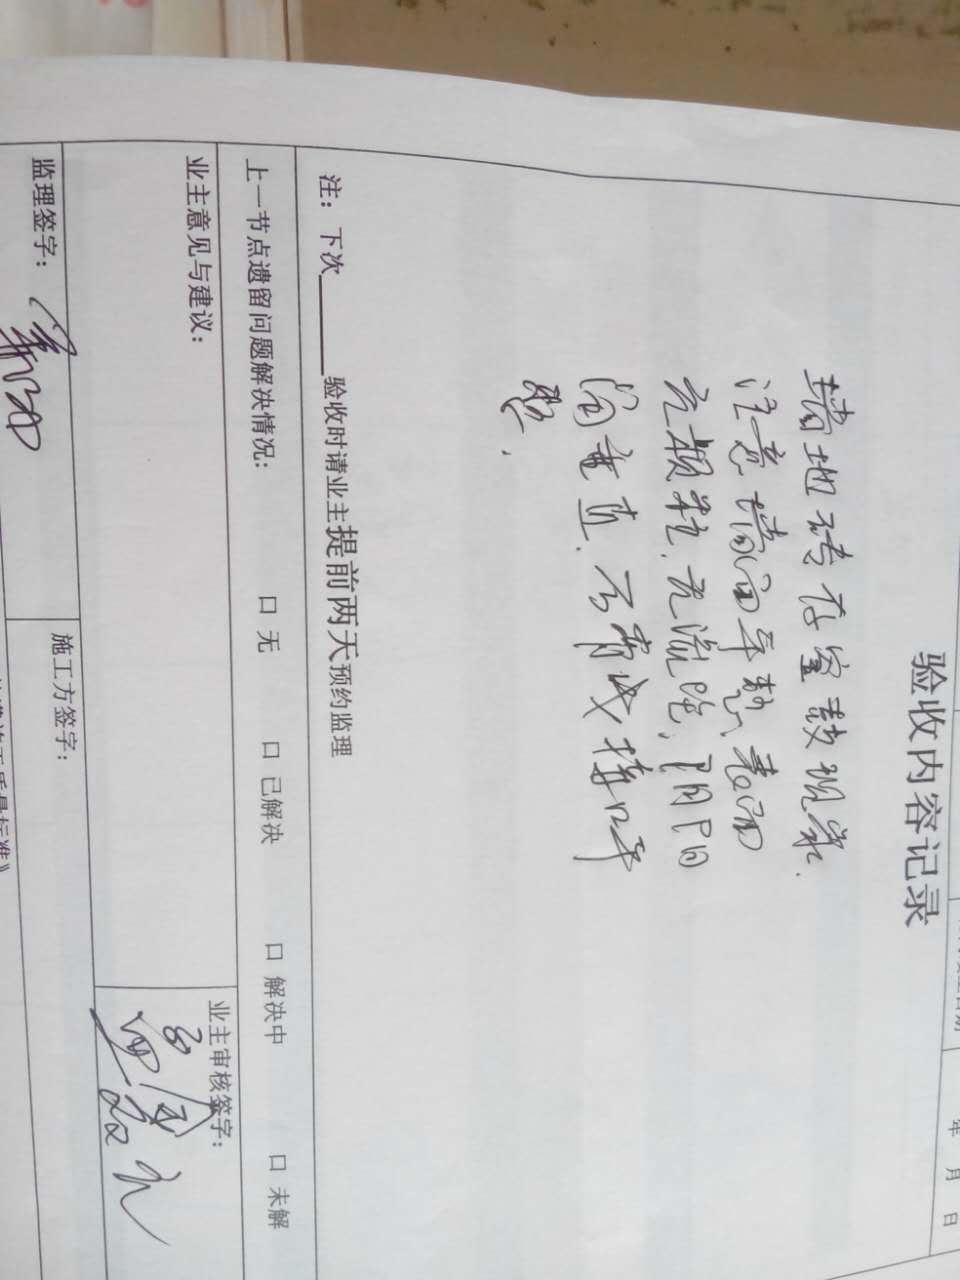 年 月 日
验收内容记录
墙地砖存空鼓现象.
注意墙面平整,表面
无颗粒,无流坠,阴阳
角垂直.石膏线接口平
整.
注: 下次______验收时请业主提前两天预约监理
上一节点遗留问题解决情况: 口 无 口 已解决 口 解决中 口 未解
业主意见与建议:
业主审核签字:
监理签字: 施工方签字: